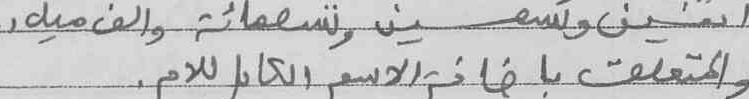 اثنين وتسعين وتسعمائة والف ميلادي
والمتعلقة باضافة الاسم الكامل للام.